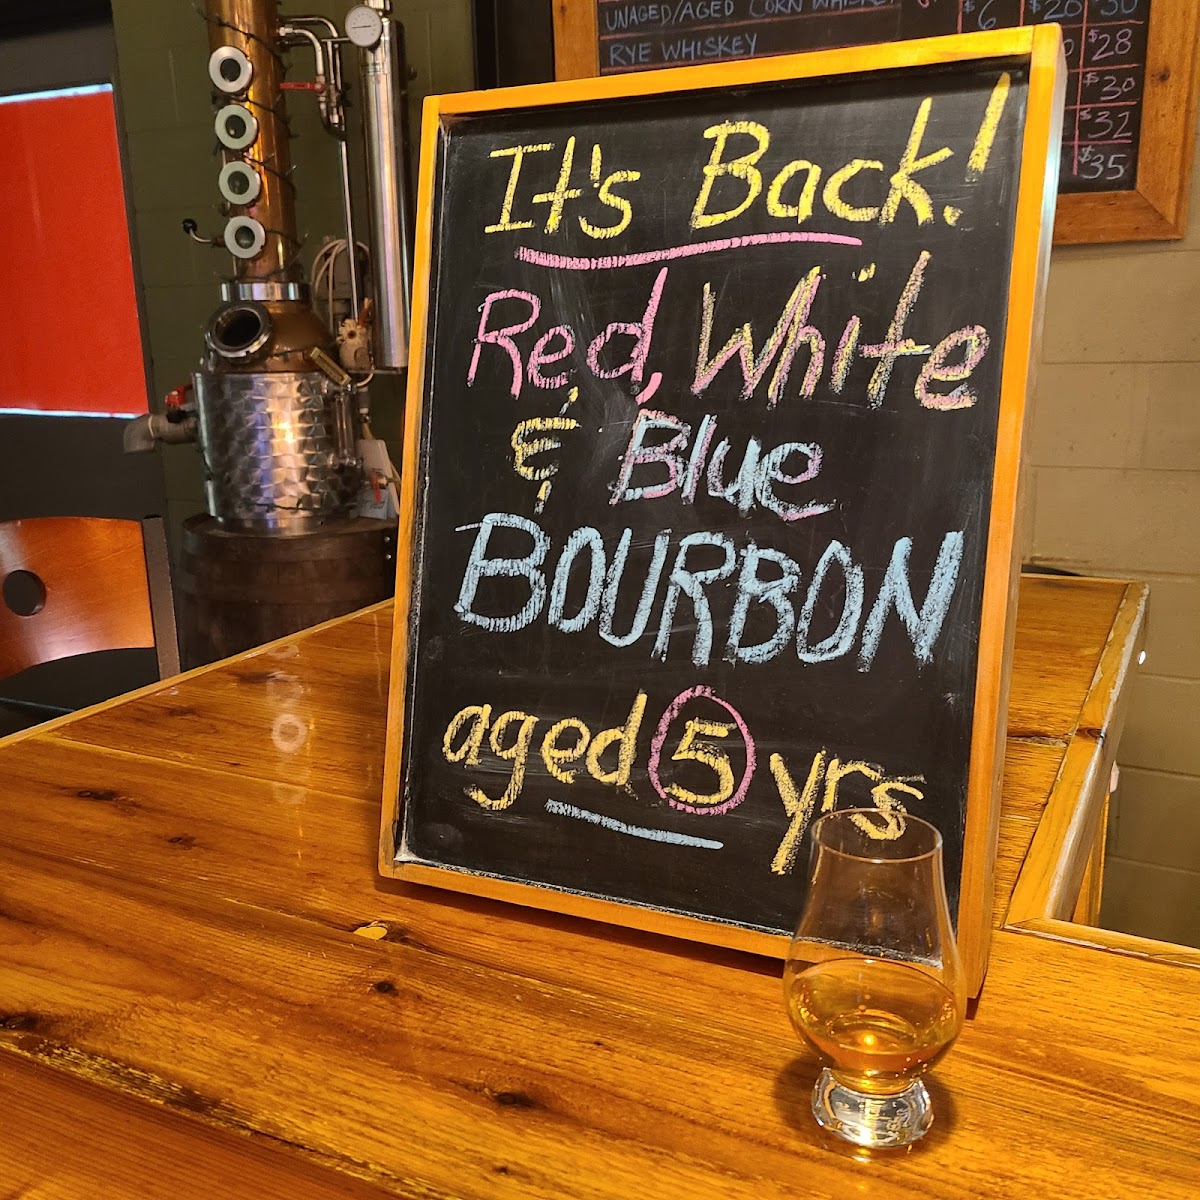 UNAGED/AGED CORN WHISKEY $6 $20 $30
RYE WHISKEY $28
$30
$32
$35
It's Back!
Red, White
& Blue
BOURBON
aged 5 yrs